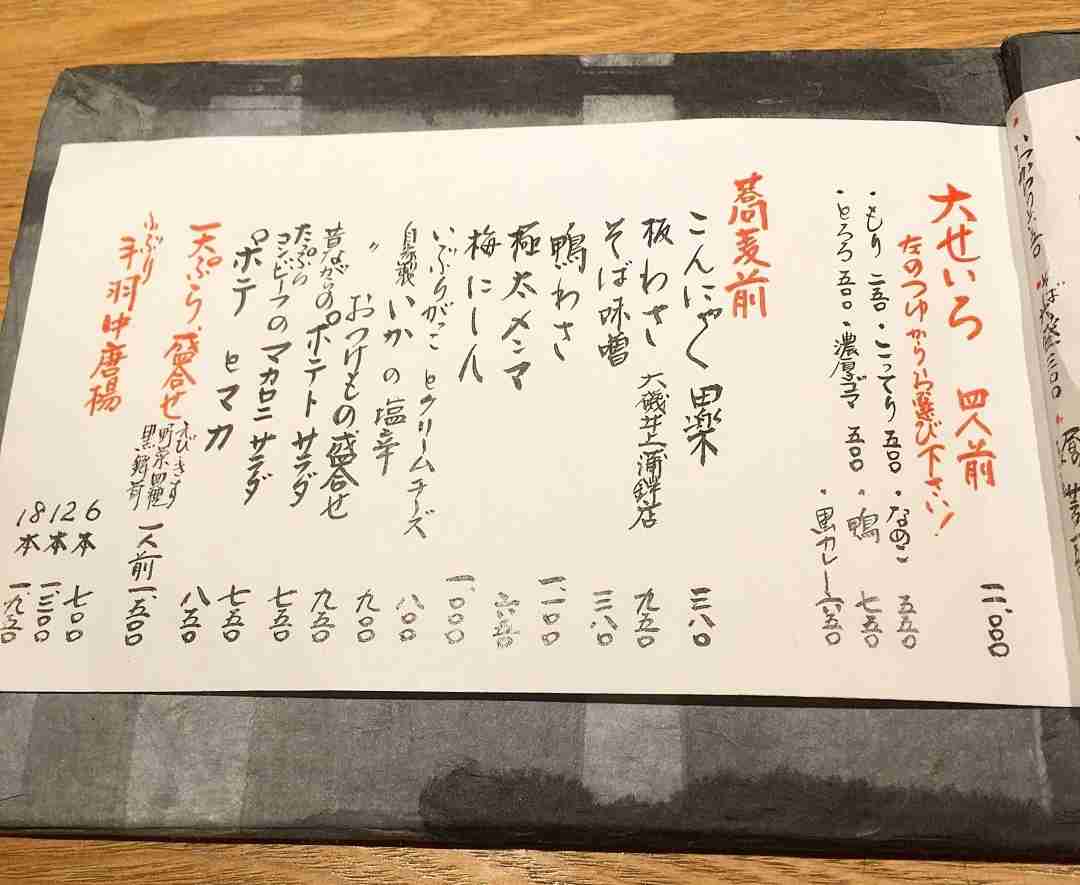 大せいろ 四人前 二、000
左のつゆからお選び下さい!
・もり 二五0 ・こってり 五00 ・なのこ 五五0
・とろろ 五00 ・濃厚ゴマ 五00 ・鴨 七五0
・黒カレー 六五0
蕎麦前
こんにゃく田楽 三八0
板わさ 大磯井上蒲鉾店 九五0
そば味噌 三八0
鴨わさ 一、一00
極太メンマ 六五0
梅にしん 一、000
いぶりがっこ とクリームチーズ 八00
自家製 いかの塩辛 九00
〃 おつけもの盛合せ 九五0
昔ながらのポテトサラダ 七五0
たっぷらコンビーフのマカロニサラダ 七五0
ポテ と マカ 八五0
天ぷら盛合せ えび きす 野菜四種 黒舞茸 一人前 一、五00
小ぶり 手羽中唐揚
6本 七00
12本 一、三00
18本 一、九五0